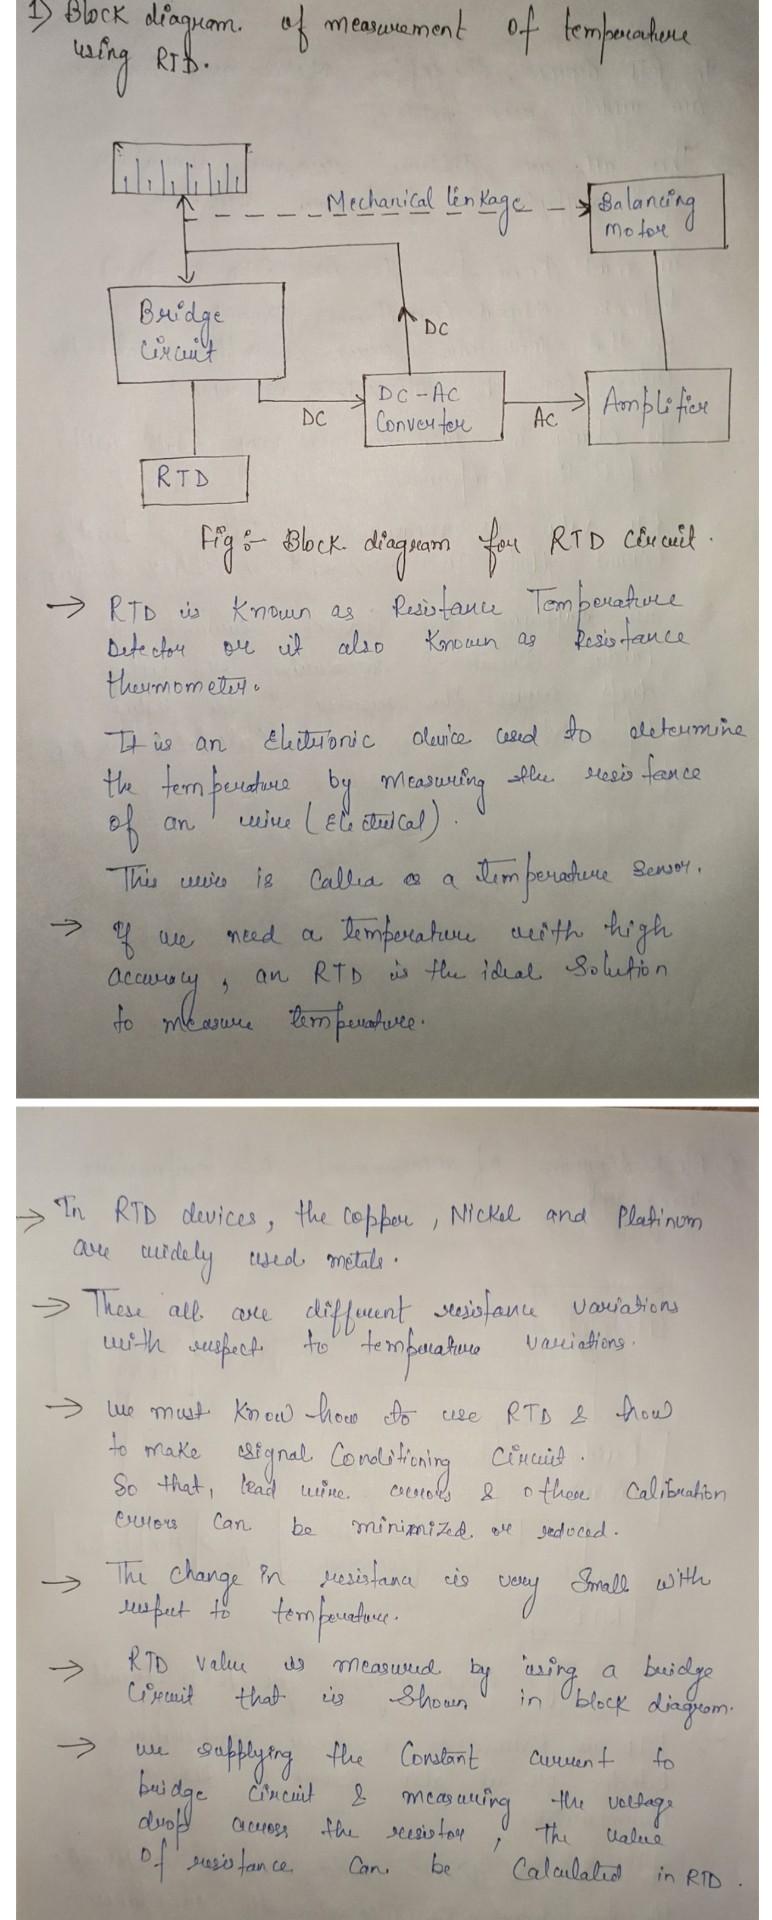 1) Block diagram. of measurement of temperature
using RTD.
Mechanical linkage
Balancing
motor
Bridge
circuit
DC
DC-AC
Converter
DC
AC
Amplifier
RTD
Fig :- Block diagram for RTD Circuit.
→ RTD is Known as Resistance Temperature
Detector or it also Known as Resistance
thermometer.
It is an Electronic device used to determine
the temperature by measuring the resistance
of an wire (Electrical).
This wire is Called as a temperature sensor.
→ If we need a temperature with high
accuracy, an RTD is the ideal Solution
to measure temperature.
→ In RTD devices, the Copper, Nickel and Platinum
are widely used metals.
→ These all are different resistance variations
with respect to temperature variations.
→ we must Know how to use RTD & how
to make signal Conditioning Circuit.
So that, lead wire errors & other Calibration
errors Can be minimized or reduced.
→ The change in resistance is very Small with
respect to temperature.
→ RTD value is measured by using a bridge
Circuit that is Shown in block diagram.
→ we supplying the Constant current to
bridge circuit & measuring the voltage
drop across the resistor, the value
of resistance Can be Calculated in RTD.